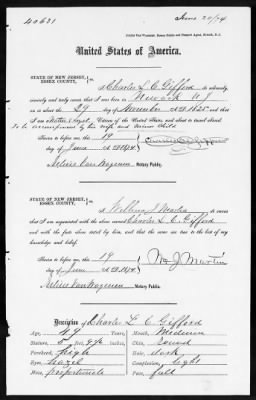 40631
June 20/74
United States of America.
STATE OF NEW JERSEY,
ESSEX COUNTY,
I Charles L. C. Gifford do
solemnly swear that I was born in Newark N J
on the 29 day of November A.D. 1825 and that
I am a Native & Loyal Citizen of the United States, and about to travel abroad
To be accompanied by his wife and minor child
Sworn to before me, this 19
day of June A.D. 1874
Notary Public.
STATE OF NEW JERSEY,
ESSEX COUNTY,
I William J Martin do swear that
I am acquainted with the above named Charles L. C. Gifford
and with the facts above stated by him, and that the same are true to the best of my
knowledge and belief.
Sworn to before me, this 19
day of June A.D. 1874
Wm J Martin
Notary Public.
Description of Charles L C Gifford
Age, 49
Mouth, Medium
Stature, 5 feet
Chin, round
Forehead, high
Hair, dark
Eyes, hazel
Complexion, light
Nose, proportionate
Face, full